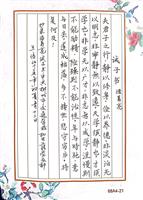 诫子书 诸葛亮
夫君子之行静以修身俭以养德非淡泊无
以明志非宁静无以致远夫学须静也才须
学也非学无以广才非志无以成学淫慢则
不能励精险躁则不能治性年与时驰意
与日去遂成枯落多不接世悲守穷庐将
复何及
68A4-21